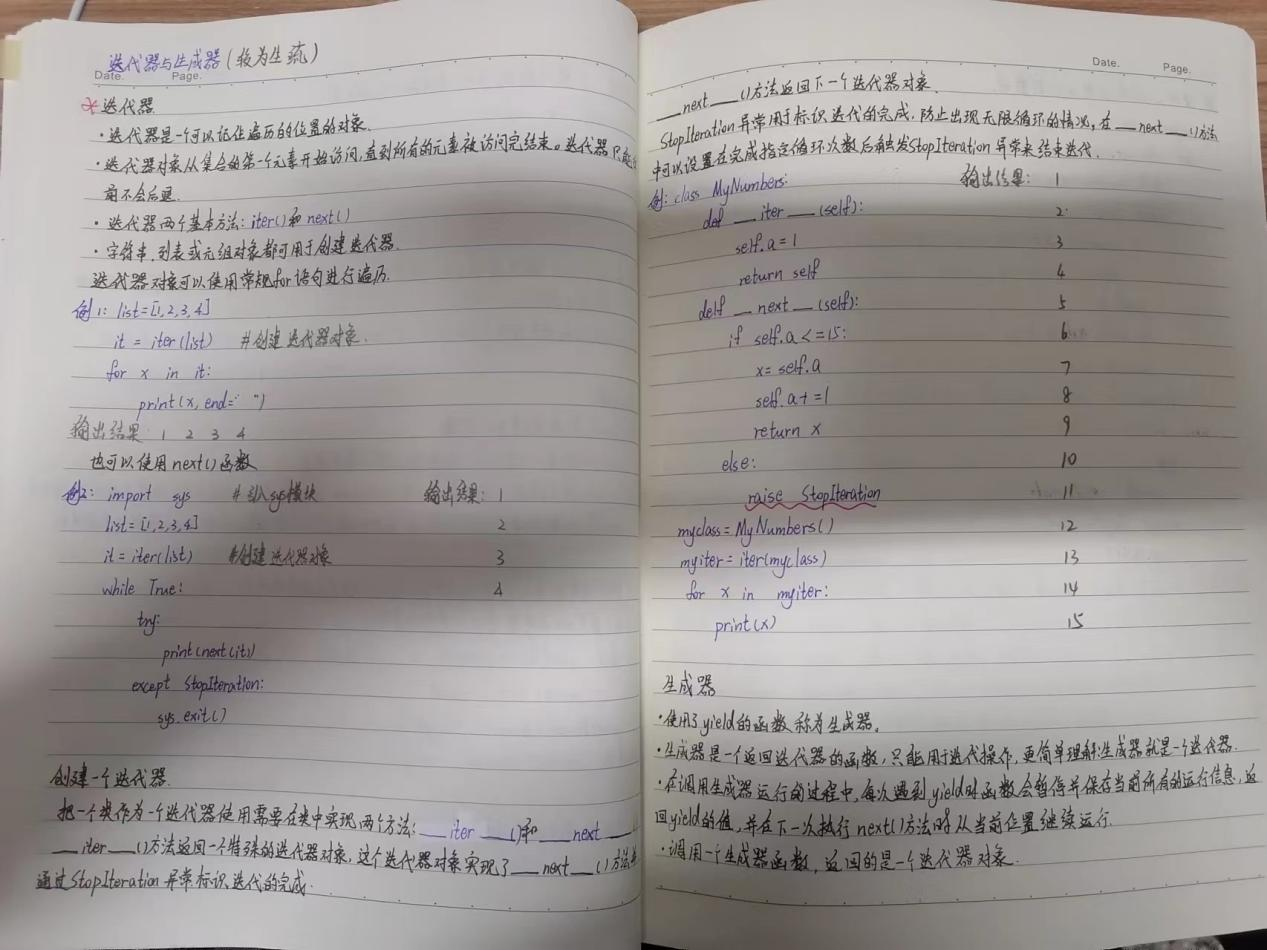 迭代器与生成器(较为生疏)
Date. Page.
* 迭代器
·迭代器是一个可以记住遍历的位置的对象.
·迭代器对象从集合的第一个元素开始访问,直到所有的元素被访问完结束。迭代器只能
前不会后退.
·迭代器两个基本方法: iter()和next()
·字符串,列表或元组对象都可用于创建迭代器.
迭代器对象可以使用常规for语句进行遍历.
例1: list=[1,2,3,4]
it = iter(list) #创建迭代器对象.
for x in it:
print(x, end=" ")
输出结果: 1 2 3 4
也可以使用next()函数
例2: import sys #引入sys模块 输出结果: 1
list=[1,2,3,4] 2
it = iter(list) #创建迭代器对象 3
while True: 4
try:
print(next(it))
except StopIteration:
sys.exit()
创建一个迭代器.
把一个类作为一个迭代器使用需要在类中实现两个方法:__iter__()和__next__
__iter__()方法返回一个特殊的迭代器对象,这个迭代器对象实现了__next__()方法并
通过StopIteration异常标识迭代的完成.
Date. Page.
__next__()方法返回下一个迭代器对象.
StopIteration异常用于标识迭代的完成,防止出现无限循环的情况,在__next__()方法
中可以设置在完成指定循环次数后触发StopIteration异常来结束迭代.
例: class MyNumbers: 输出结果: 1
def __iter__(self): 2
self.a=1 3
return self 4
delf __next__(self): 5
if self.a<=15: 6
x=self.a 7
self.a+=1 8
return x 9
else: 10
raise StopIteration 11
myclass=MyNumbers() 12
myiter=iter(myclass) 13
for x in myiter: 14
print(x) 15
生成器
·使用了yield的函数称为生成器。
·生成器是一个返回迭代器的函数,只能用于迭代操作,更简单理解:生成器就是一个迭代器.
·在调用生成器运行的过程中,每次遇到yield时函数会暂停并保存当前所有的运行信息,返
回yield的值,并在下一次执行next()方法时从当前位置继续运行.
·调用一个生成器函数,返回的是一个迭代器对象.